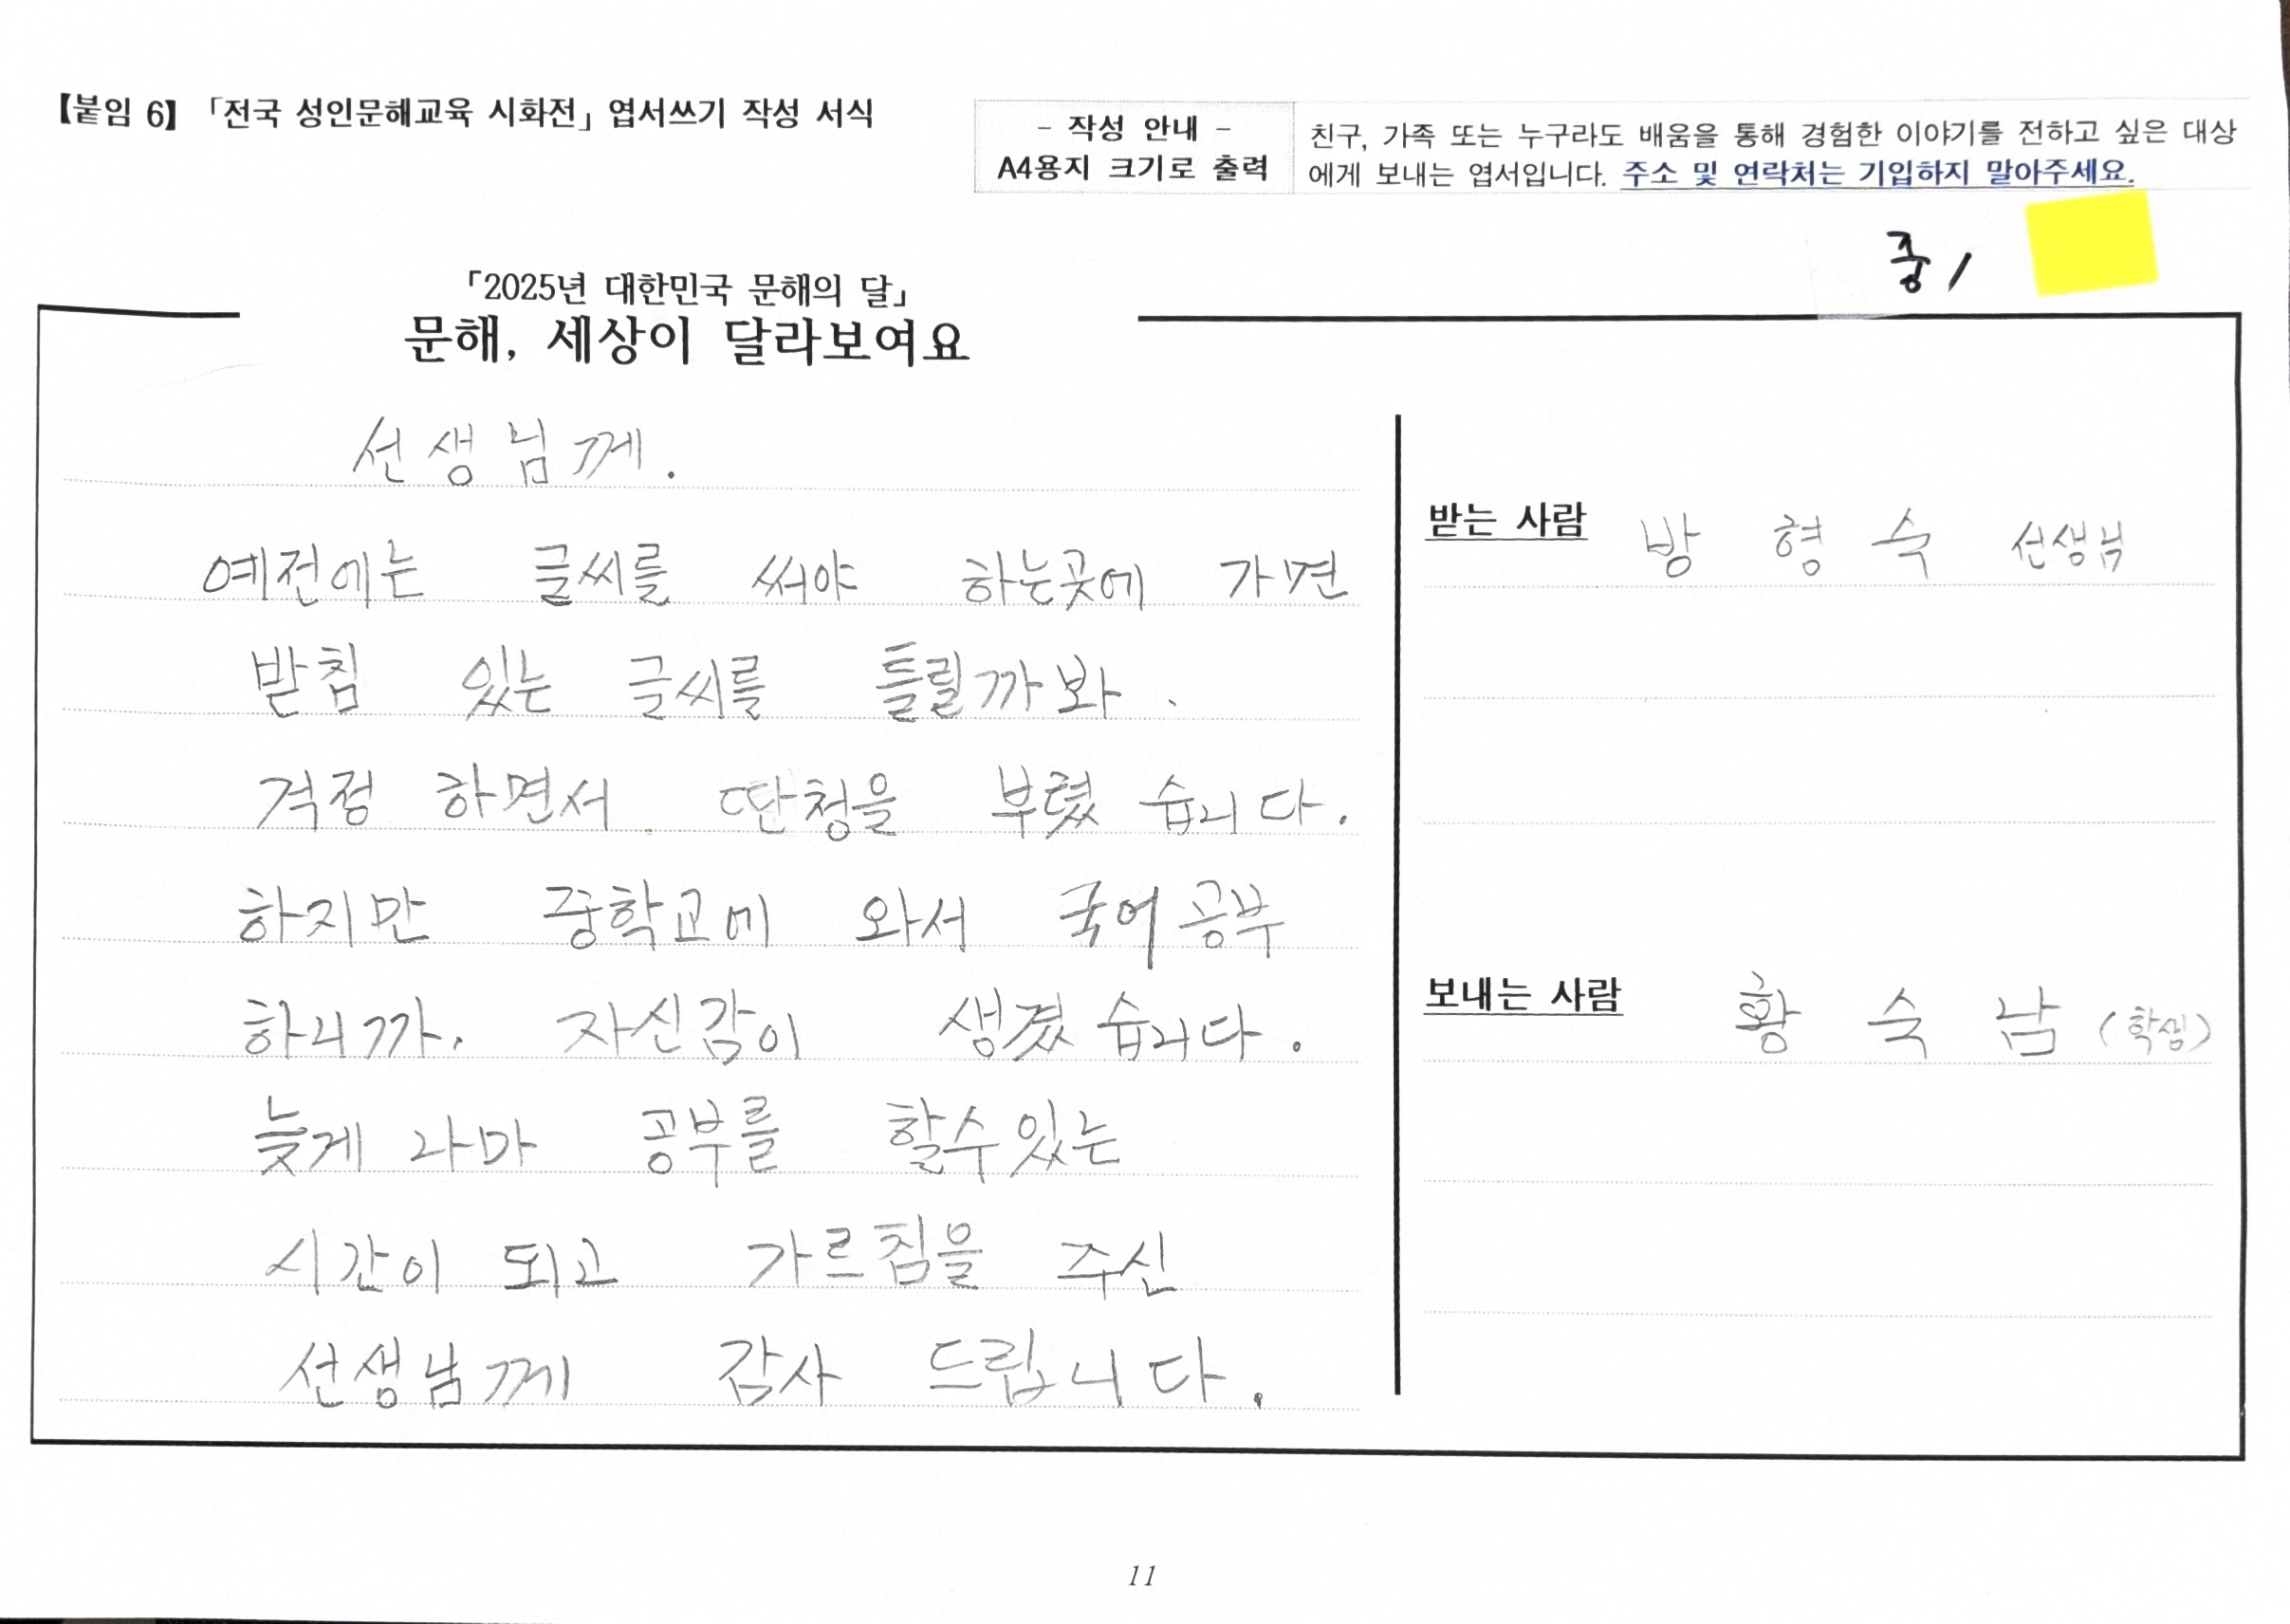 【붙임 6】 「전국 성인문해교육 시화전」 엽서쓰기 작성 서식
- 작성 안내 -
A4용지 크기로 출력
친구, 가족 또는 누구라도 배움을 통해 경험한 이야기를 전하고 싶은 대상
에게 보내는 엽서입니다. 주소 및 연락처는 기입하지 말아주세요.
중1
「2025년 대한민국 문해의 달」
문해, 세상이 달라보여요
선생님께.
예전에는 글씨를 써야 하는곳에 가면
받침 있는 글씨를 틀릴까봐.
걱정 하면서 딴청을 부렸습니다.
하지만 중학교에 와서 국어공부
하니까. 자신감이 생겼습니다.
늦게 나마 공부를 할수있는
시간이 되고 가르침을 주신
선생님께 감사 드립니다.
받는 사람 방 형 숙 선생님
보내는 사람 황 숙 남 (학생)
11